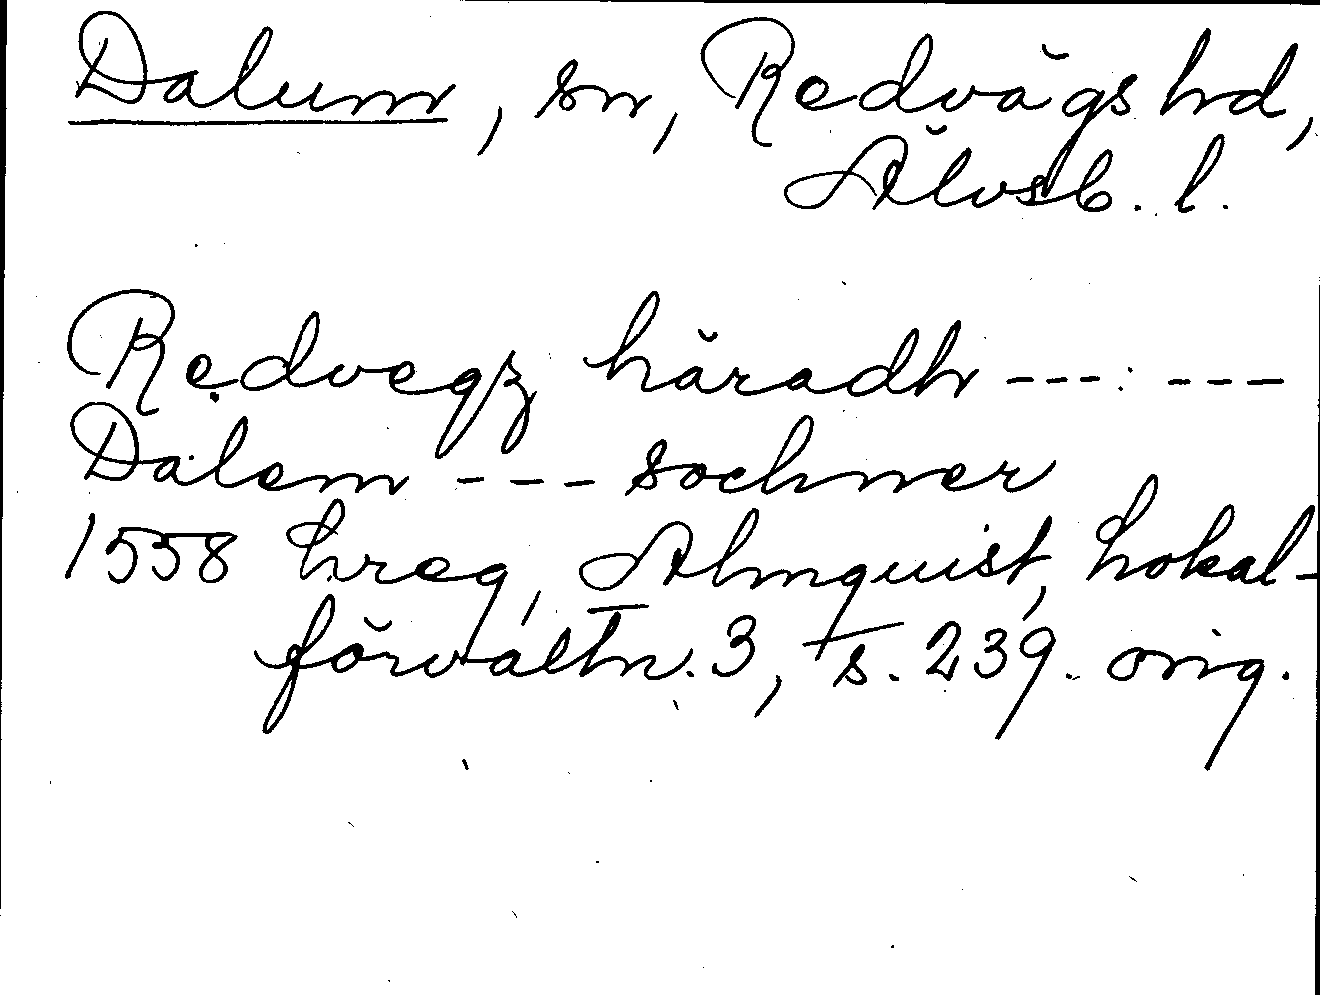 Dalum, sn, Redvägs hd,
Älvsb. l.
Redvegz häradh --- ---
Dalem --- sochner
1558 hreg, Almquist, Lokal-
förvaltn. 3, s. 239. orig.